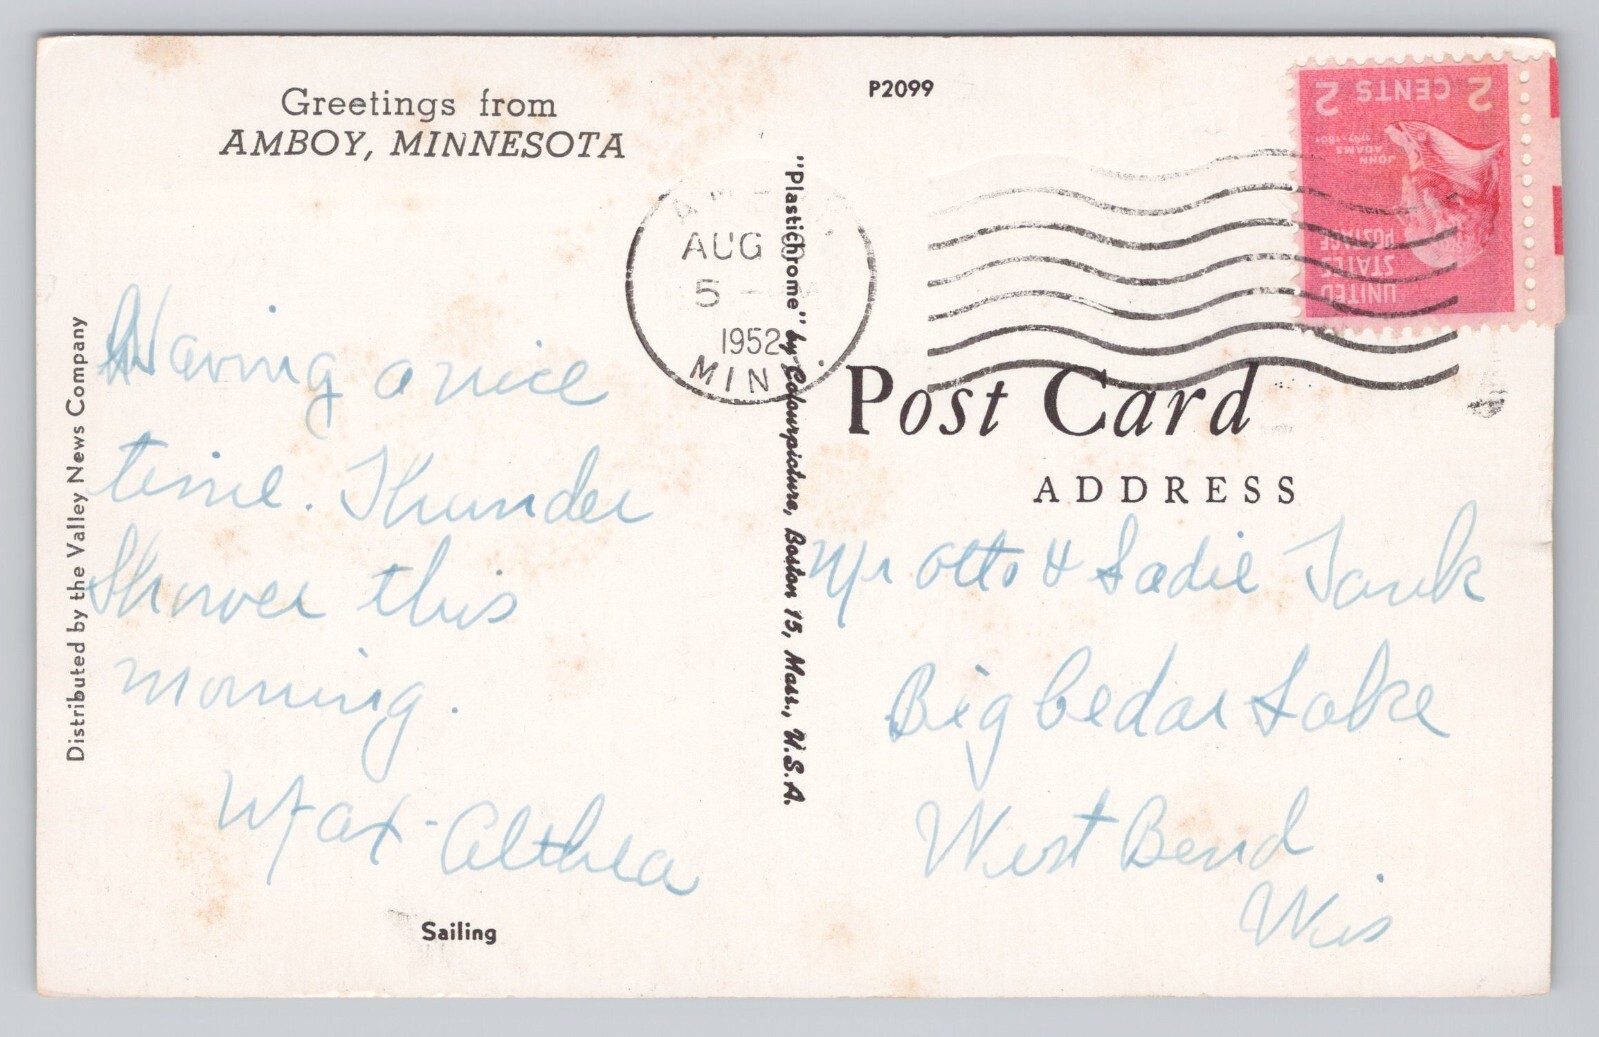 Greetings from
AMBOY, MINNESOTA
P2099
2 CENTS 2
JOHN
ADAMS
1797-1801
UNITED
STATES
POSTAGE
AUG
5
1952
MINN.
"Plastichrome" by Colourpicture, Boston 15, Mass., U.S.A.
Distributed by the Valley News Company
Having a nice
time. Thunder
Shower this
morning.
Wax - Althea
Sailing
Post Card
ADDRESS
Mr Otto & Sadie Tank
Big Cedar Lake
West Bend
Wis